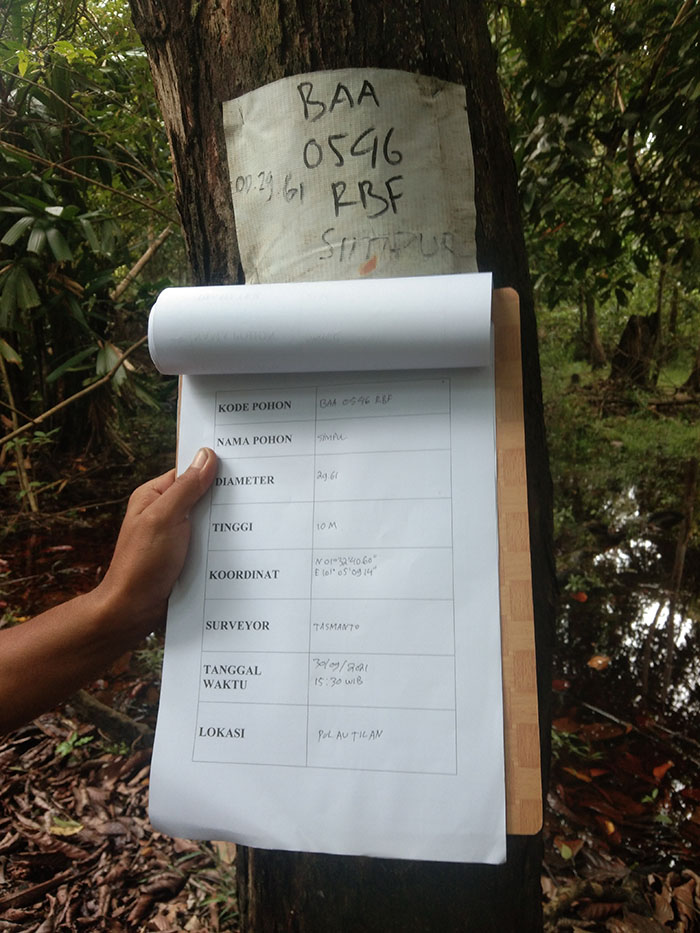 BAA
0546
00.29.61 RBF
SIMPUR
KODE POHON BAA 0546 RBF
NAMA POHON SIMPUR
DIAMETER 29.61
TINGGI 10 M
KOORDINAT N 01°32'40.60"
E 101° 05'09.14"
SURVEYOR TASMANTO
TANGGAL WAKTU 30/09/2021
15:30 WIB
LOKASI PULAU TILAN